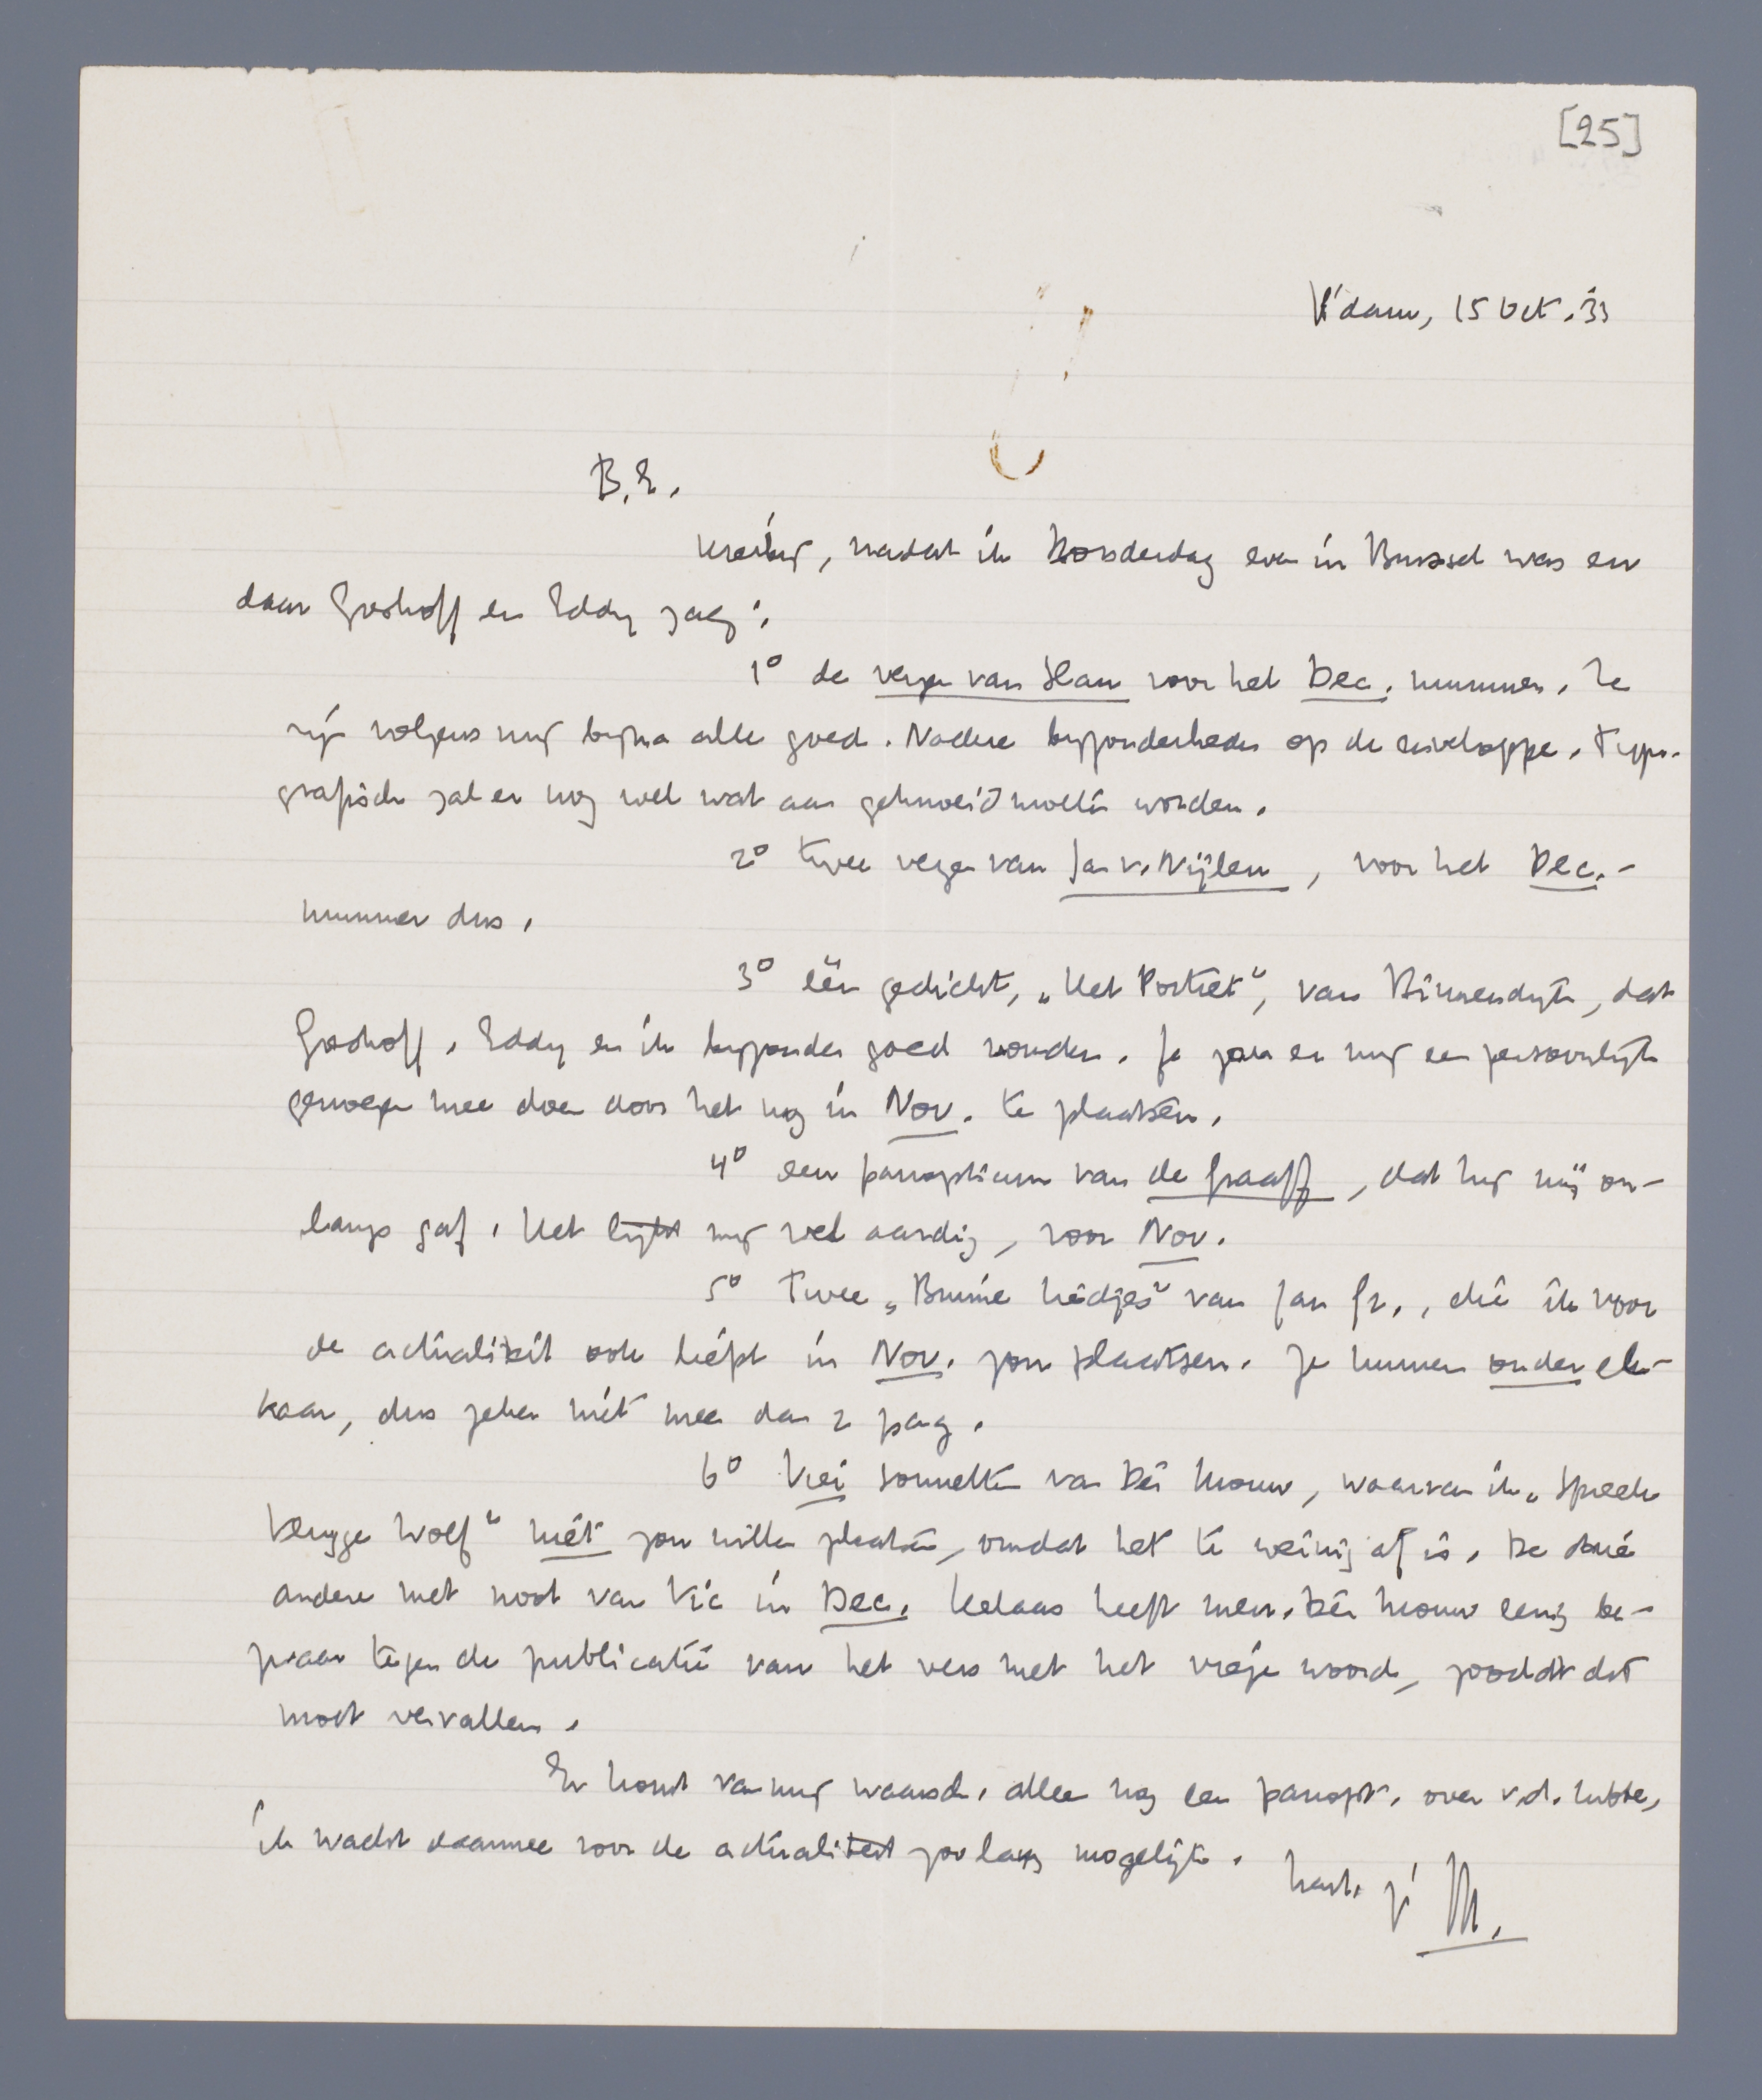 [25]
R'dam, 15 Oct. '33
B.E.
Hierbij, nadat ik Donderdag even in Brussel was en
daar Greshoff en Eddy zag:
1° de verzen van Slau voor het Dec. nummer. Ze
zijn volgens mij bijna alle goed. Nadere bijzonderheden op de enveloppe. Typo-
grafisch zal er nog wel wat aan geknoeid moeten worden.
2° twee verzen van Jan v. Nijlen, voor het Dec.-
nummer dus.
3° één gedicht, „Het Portret", van Binnendijk, dat
Greshoff, Eddy en ik bijzonder goed vonden. Je zou er mij een persoonlijk
genoegen mee doen door het nog in Nov. te plaatsen.
4° een panopticum van de Graaff, dat hij mij on-
langs gaf. Het lijkt mij wel aardig, voor Nov.
5° Twee „Bruine liedjes" van Jan Gr., die ik voor
de actualiteit ook liefst in Nov. zou plaatsen. Ze kunnen onder el-
kaar, dus zeker niet meer dan 2 pag.
6° Drei sonnetten van Dèr Mouw, waarvan ik „Spreek
Wolf" niét zou willen plaatsen, omdat het te weinig af is. De drie
andere met noot van Vic in Dec. Helaas heeft mevr. Dèr Mouw eenig be-
zwaar tegen de publicatie van het vers met het vieze woord, zoodat dat
moet vervallen.
Er komt van mij waarsch. alleen nog een panopt. over v.d. Lubbe,
ik wacht daarmee voor de actualiteit zoo lang mogelijk.
hart. gr. M.